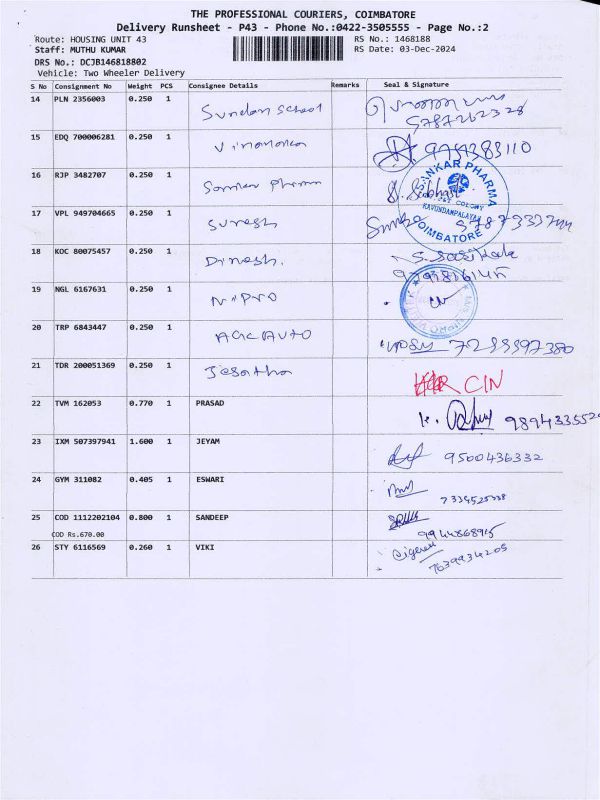 THE PROFESSIONAL COURIERS, COIMBATORE
Delivery Runsheet - P43 - Phone No.:0422-3505555 - Page No.:2
Route: HOUSING UNIT 43 RS No.: 1468188
Staff: MUTHU KUMAR RS Date: 03-Dec-2024
DRS No.: DCJB146818802
Vehicle: Two Wheeler Delivery
S No Consignment No Weight PCS Consignee Details Remarks Seal & Signature
14 PLN 2356003 0.250 1 School
15 EDQ 700006281 0.250 1
16 RJP 3482707 0.250 1 SANKAR PHARMA
RAVUNDAMPALAYAM
COIMBATORE
17 VPL 949704665 0.250 1 Suresh
18 KOC 80075457 0.250 1 Dinesh. S. Sasikala
19 NGL 6167631 0.250 1 Nipro
20 TRP 6843447 0.250 1
21 TDR 200051369 0.250 1 CIN
22 TVM 162053 0.770 1 PRASAD
23 IXM 507397941 1.600 1 JEYAM 9500436332
24 GYM 311082 0.405 1 ESWARI
25 COD 1112202104 0.800 1 SANDEEP
COD Rs.670.00 9944868915
26 STY 6116569 0.260 1 VIKI 7639934205